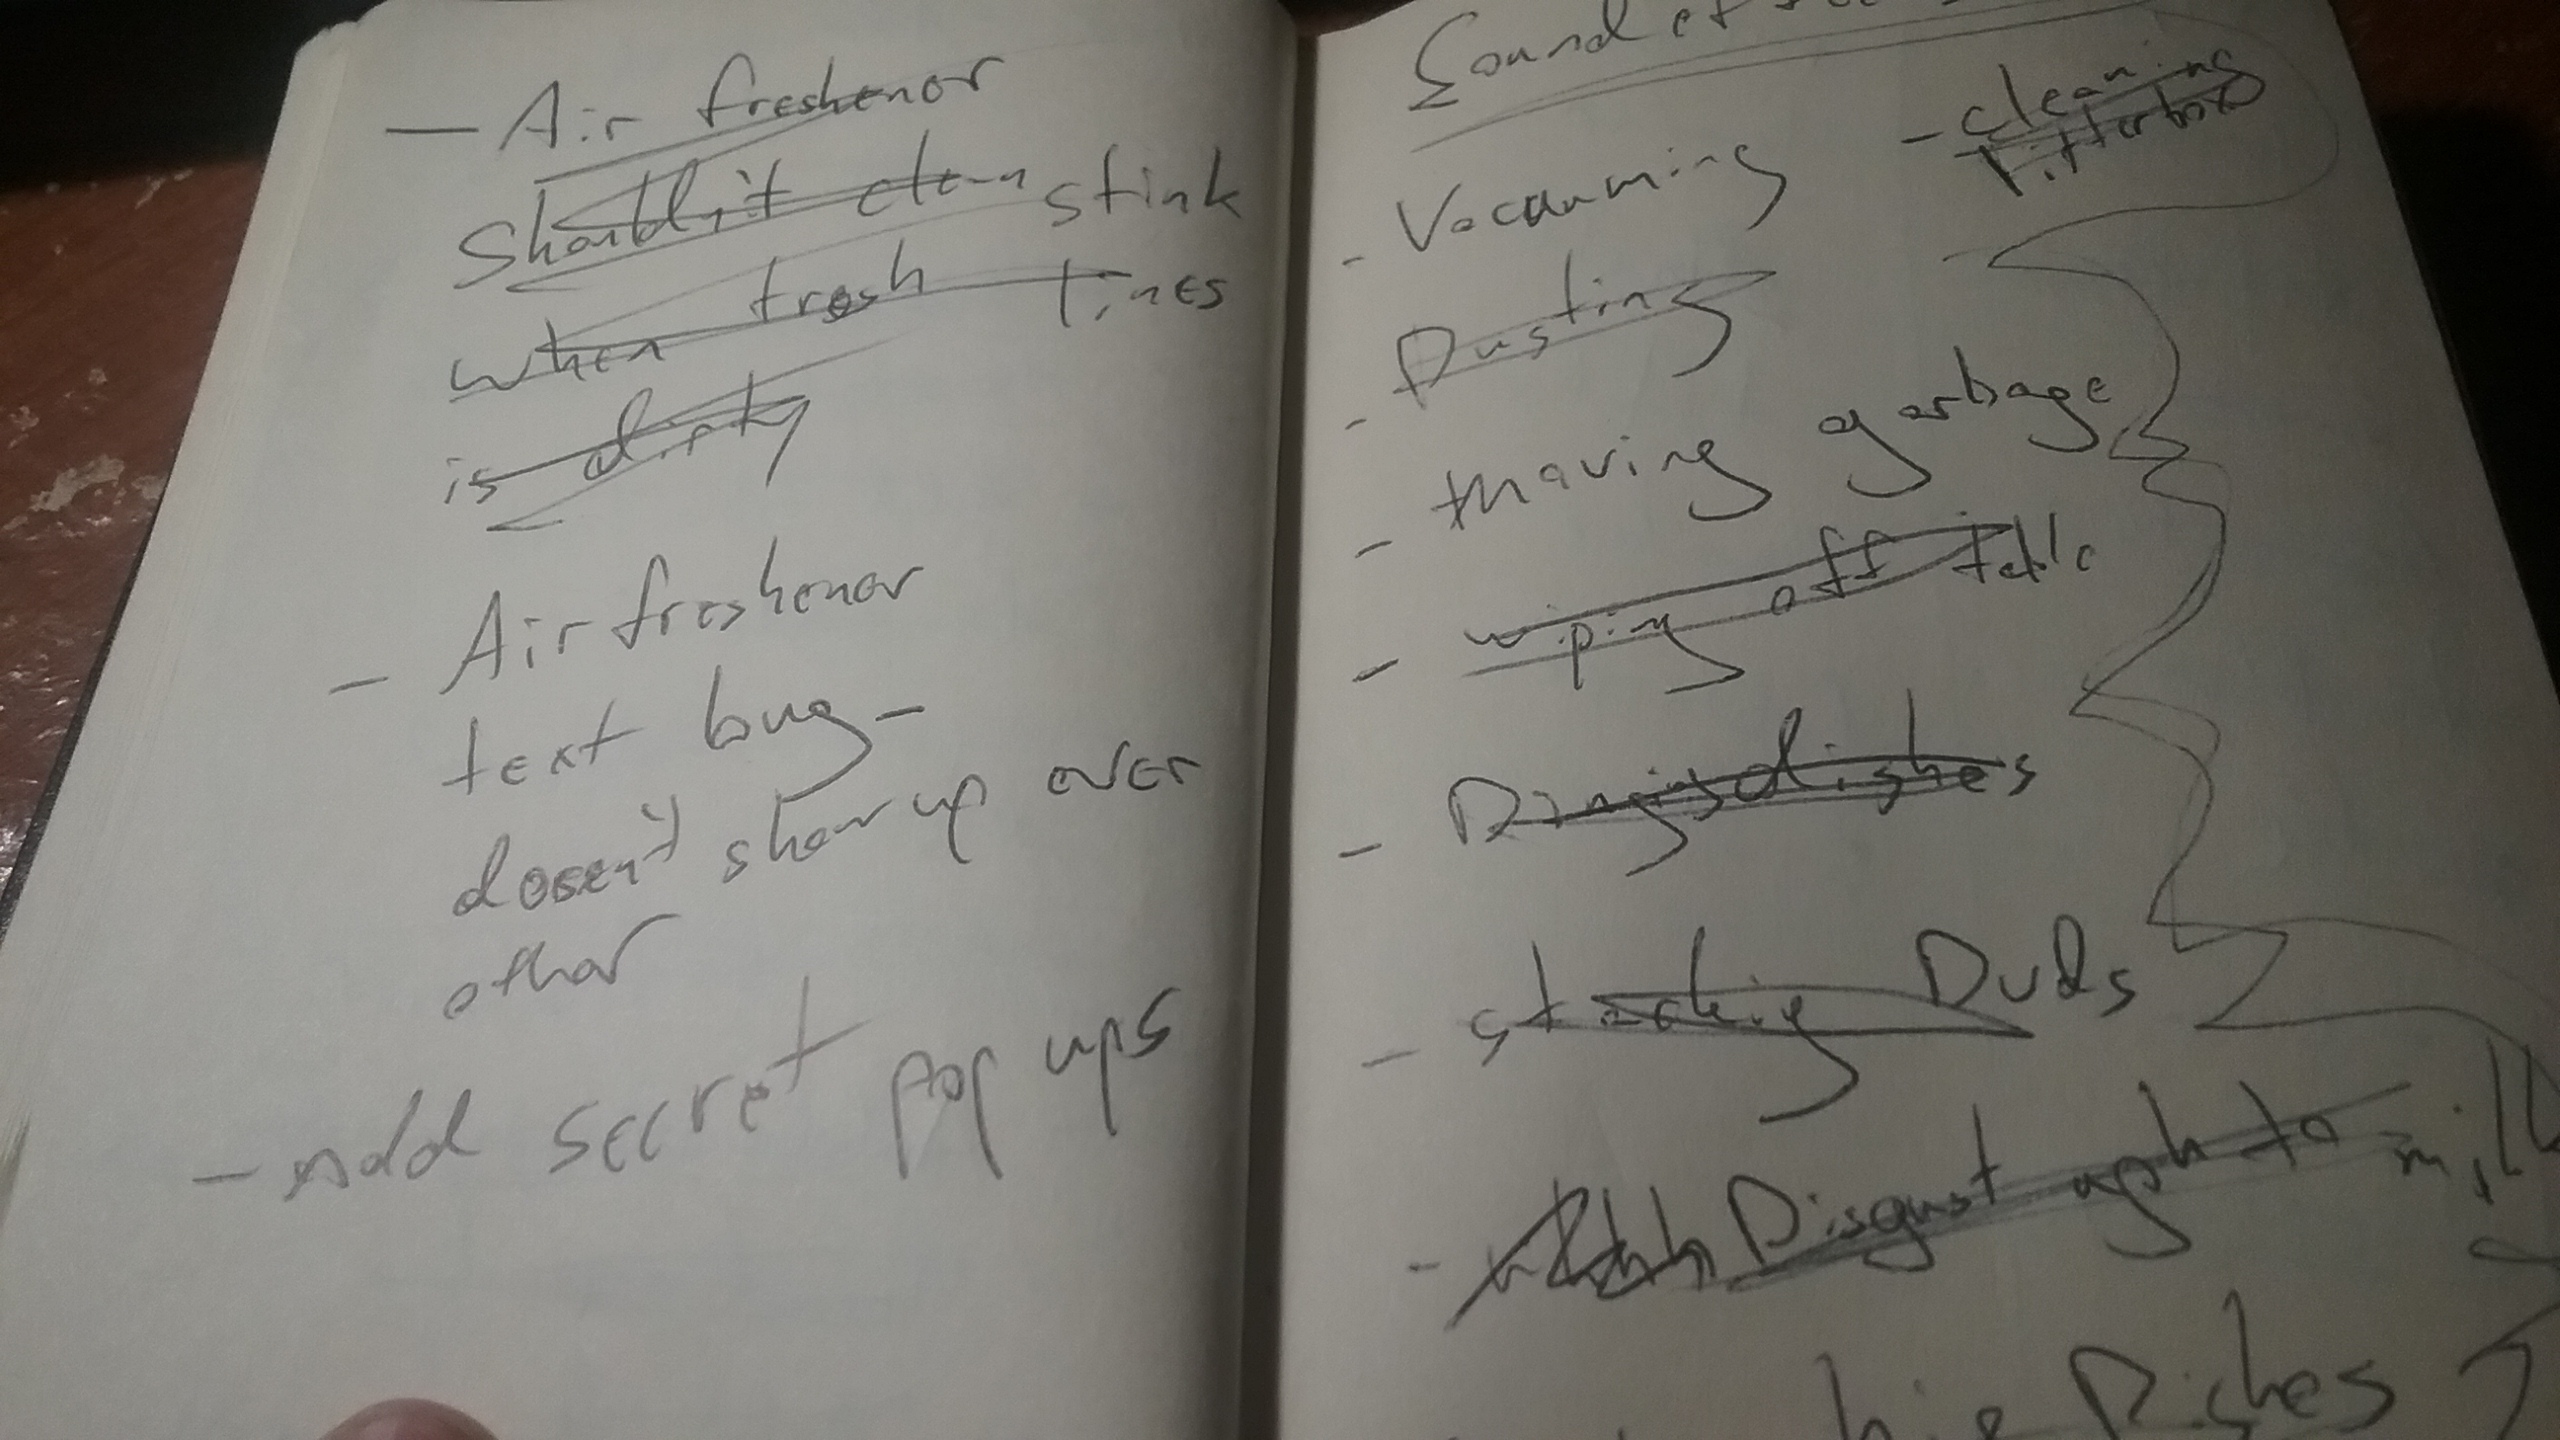 - Air freshenor
Shouldn't clean stink
when fresh tines
is dirty
- Air freshenor
text bug -
dosen't show up over
other
- Add secret pop ups
Sound
- cleaning
litterbox
- Vacauming
- Dusting
- thowing garbage
- wiping off table
- dishes
- stacking DVDs
- Disgust ugh to milk
Dishes